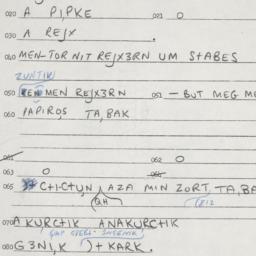 020 A PI,PKE 021 O
030 A REJX
040 MEN-TOR NIT REJX3RN UM STABES
ZUNTIK
050 MEN REJX3RN 051 - BUT MEG ME
060 PAPIROS TA,BAK
061 062 O
063 O
065 C+I-C+U,N AZA MIN ZORT, TA,BA
QH
070 A KURC+IK ANAKURC+IK
080 G3NI,K )+ KARK.